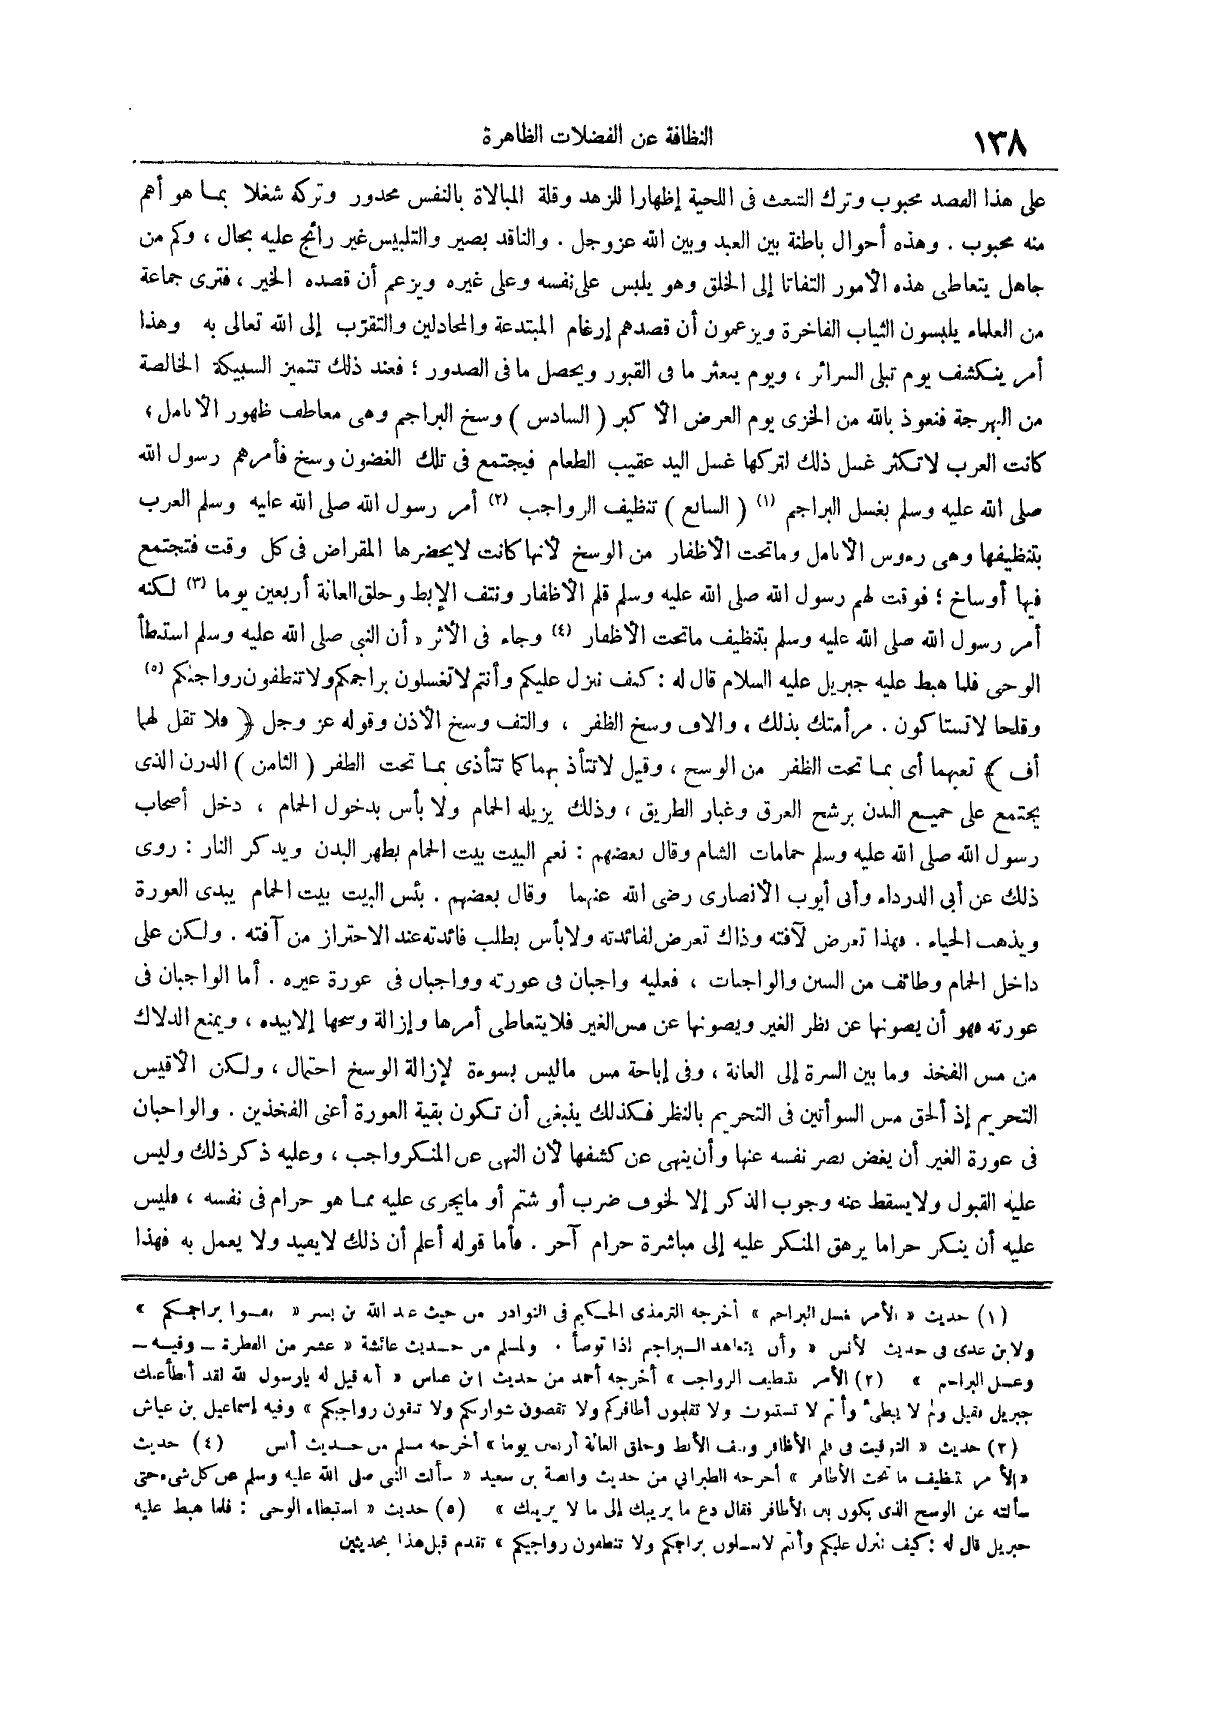 ١٣٨
النظافة عن الفضلات الظاهرة
على هذا القصد محبوب وترك الشعث فى اللحية إظهارا للزهد وقلة المبالاة بالنفس محذور وتركه شغلا بما هو أهم
منه محبوب . وهذه أحوال باطنة بين العبد وبين الله عزوجل . والناقد بصير والتلبيس غير رائج عليه بحال ، وكم من
جاهل يتعاطى هذه الأمور التفاتا إلى الخلق وهو يلبس على نفسه وعلى غيره ويزعم أن قصده الخير ، فترى جماعة
من العلماء يلبسون الثياب الفاخرة ويزعمون أن قصدهم إرغام المبتدعة والمجادلين والتقرّب إلى الله تعالى به وهذا
أمر ينكشف يوم تبلى السرائر ، ويوم يبعثر ما فى القبور ويحصل ما فى الصدور ؛ فعند ذلك تتميز السبيكة الخالصة
من البهرجة فنعوذ بالله من الخزى يوم العرض الأكبر ( السادس ) وسخ البراجم وهى معاطف ظهور الأنامل ؛
كانت العرب لا تكثر غسل ذلك لتركها غسل اليد عقيب الطعام فيجتمع فى تلك الغضون وسخ فأمرهم رسول الله
صلى الله عليه وسلم بغسل البراجم (١) ( السابع ) تنظيف الرواجب (٢) أمر رسول الله صلى الله عليه وسلم العرب
بتنظيفها وهى رءوس الأنامل وماتحت الأظفار من الوسخ لأنها كانت لا يحضرها المقراض فى كل وقت فتجتمع
فيها أوساخ ؛ فوقت لهم رسول الله صلى الله عليه وسلم قلم الأظفار ونتف الإبط وحلق العانة أربعين يوما (٣) لكنه
أمر رسول الله صلى الله عليه وسلم بتنظيف ماتحت الأظفار (٤) وجاء فى الأثر « أن النبى صلى الله عليه وسلم استبطأ
الوحى فلما هبط عليه جبريل عليه السلام قال له : كيف ننزل عليكم وأنتم لا تغسلون براجمكم ولا تنظفون رواجبكم (٥)
وقلحا لا تستاكون . مر أمتك بذلك ، والاف وسخ الظفر ، والتف وسخ الأذن وقوله عز وجل ﴿ فلا تقل لهما
أف ﴾ تعبهما أى بما تحت الظفر من الوسخ ، وقيل لا تتأذ بهما كما تتأذى بما تحت الظفر ( الثامن ) الدرن الذى
يجتمع على جميع البدن برشح العرق وغبار الطريق ، وذلك يزيله الحمام ولا بأس بدخول الحمام ، دخل أصحاب
رسول الله صلى الله عليه وسلم حمامات الشام وقال بعضهم : نعم البيت بيت الحمام يطهر البدن ويذكر النار : روى
ذلك عن أبى الدرداء وأبى أيوب الأنصارى رضى الله عنهما وقال بعضهم . بئس البيت بيت الحمام يبدى العورة
ويذهب الحياء . فهذا تعرض لآفته وذاك تعرض لفائدته ولا بأس بطلب فائدته عند الاحتراز من آفته . ولكن على
داخل الحمام وظائف من السنن والواجبات ، فعليه واجبان فى عورته وواجبان فى عورة غيره . أما الواجبان فى
عورته فهو أن يصونها عن نظر الغير ويصونها عن مس الغير فلا يتعاطى أمرها وإزالة وسخها إلا بيده ، ويمنع الدلاك
من مس الفخذ وما بين السرة إلى العانة ، وفى إباحة مس ماليس بسوءة لإزالة الوسخ احتمال ، ولكن الأقيس
التحريم إذ ألحق مس السوأتين فى التحريم بالنظر فكذلك ينبغى أن تكون بقية العورة أعنى الفخذين . والواجبان
فى عورة الغير أن يغض بصر نفسه عنها وأن ينهى عن كشفها لأن النهى عن المنكر واجب ، وعليه ذكر ذلك وليس
عليه القبول ولا يسقط عنه وجوب الذكر إلا لخوف ضرب أو شتم أو مايجرى عليه مما هو حرام فى نفسه ، فليس
عليه أن ينكر حراما يرهق المنكر عليه إلى مباشرة حرام آخر . فأما قوله أعلم أن ذلك لا يفيد ولا يعمل به فهذا
(١) حديث « الأمر بغسل البراجم » أخرجه الترمذى الحكيم فى النوادر من حديث عبد الله بن بسر « نقوا براجمكم »
ولابن عدى فى حديث لأنس « وأن يتعاهد البراجم إذا توضأ . ولمسلم من حديث عائشة « عشر من الفطرة ــ وفيه ــ
وغسل البراجم » (٢) الأمر بتنظيف الرواجب » أخرجه أحمد من حديث ابن عباس « أنه قيل له يارسول لله لقد أبطأ عنك
جبريل فقيل ولم لا يبطئ وأنتم لا تستنون ولا تقلمون أظافركم ولا تقصون شواربكم ولا تنقون رواجبكم » وفيه اسماعيل بن عياش
(٣) حديث « التوقيت فى قلم الأظافر ونتف الأبط وحلق العانة أربعين يوما » أخرجه مسلم من حديث أنس (٤) حديث
« الأمر بتنظيف ما تحت الأظافر » أخرجه الطبرانى من حديث وابصة بن سعيد « سألت النبى صلى الله عليه وسلم عن كل شىء حتى
سألته عن الوسخ الذى يكون بين الأظافر فقال دع ما يريبك إلى ما لا يريبك » (٥) حديث « استبطاء الوحى : فلما هبط عليه
جبريل قال له : كيف ننزل عليكم وأنتم لا تغسلون براجمكم ولا تنظفون رواجبكم » تقدم قبل هذا بحديثين